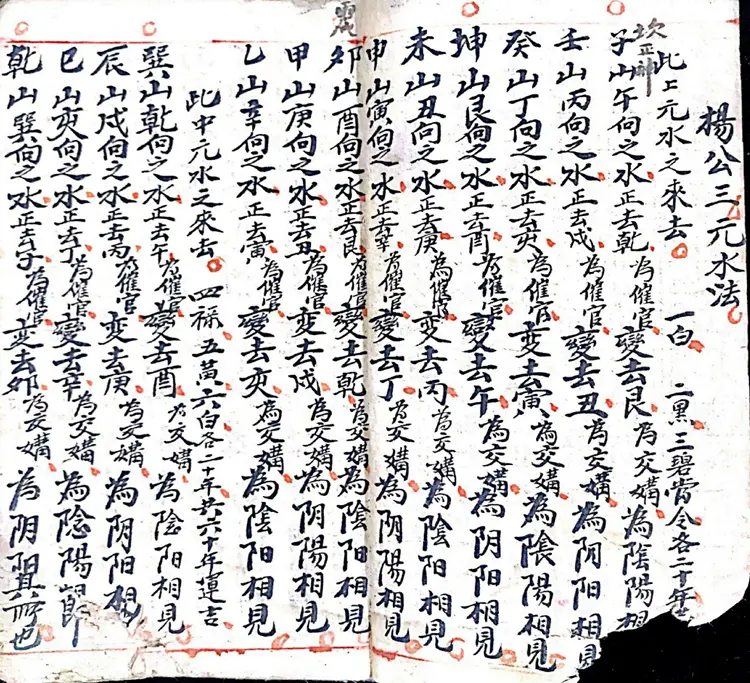 楊公三元水法
此上元水之來去 一白 二黑 三碧當令各二十年
坎正神
子山午向之水正去乾為催官變去艮為交媾為陰陽相
壬山丙向之水正去戌為催官變去丑為交媾為阴阳相見
癸山丁向之水正去亥為催官变去寅為交媾為陰陽相見
坤山艮向之水正去酉為催官變去午為交媾為阴阳相見
未山丑向之水正去庚為催官变去丙為交媾為陰阳相見
申山寅向之水正去辛為催官變去丁為交媾為阴陽相見
卯山酉向之水正去艮為催官變去乾為交媾為陰阳相見
甲山庚向之水正去丑為催官变去戌為交媾為阴陽相見
乙山辛向之水正去寅為催官變去亥為交媾為陰阳相見
此中元水之來去 四祿五黃六白各二十年共六十年運吉
巽山乾向之水正去午為催官變去酉為交媾為陰阳相見
辰山戌向之水正去丙為催官变去庚為交媾為阴阳相
巳山亥向之水正去丁為催官變去辛為交媾為陰陽
乾山巽向之水正去子為催官变去卯為交媾為阴阳其所也